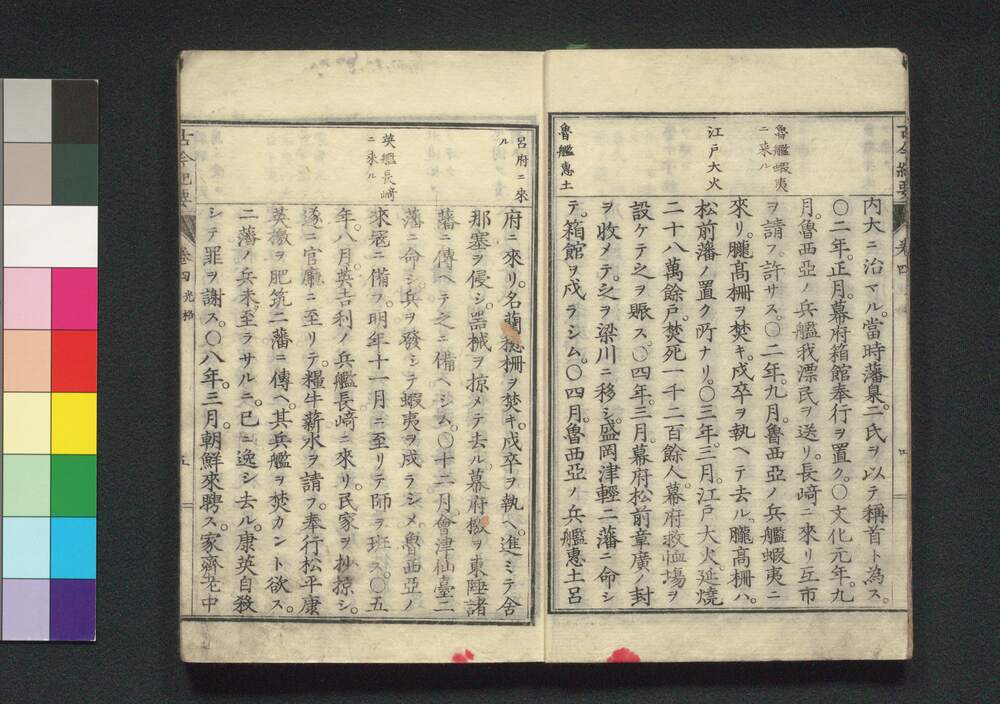 魯艦蝦夷
ニ来ル
江戸大火
魯艦惠土
内大ニ治マル。當時藩臬二氏ヲ以テ稱首ト為ス。
〇二年。正月。幕府箱館奉行ヲ置ク。〇文化元年。九
月。魯西亞ノ兵艦我漂民ヲ送リ。長﨑ニ來リ互市
ヲ請フ。許サス。〇二年。九月。魯西亞ノ兵艦蝦夷ニ
來リ。朧髙柵ヲ焚キ。戍卒ヲ執ヘテ去ル。朧高柵ハ。
松前藩ノ置ク所ナリ。〇三年。三月。江戸大火。延燒
二十八萬餘戸。焚死一千二百餘人。幕府救恤塲ヲ
設ケテ之ヲ賑ス。〇四年。三月。幕府松前章廣ノ封
ヲ收メテ。之ヲ梁川ニ移シ。盛岡津輕二藩ニ命シ
テ。箱館ヲ戍ラシム。〇四月。魯西亞ノ兵艦惠土呂
古今紀要
卷四
呂府ニ來
ル
英艦長﨑
ニ來ル
府ニ來リ。名蘭
柵ヲ焚キ。戍卒ヲ執ヘ。進ミテ舍
那塞ヲ侵シ。噐械ヲ掠メテ去ル。幕府檄ヲ東陲諸
藩ニ傳ヘテ之ニ備ヘシム。〇十二月。會津仙臺二
藩ニ命シ。兵ヲ發シテ蝦夷ヲ戍ラシメ。魯西亞ノ
來冦ニ備フ。明年十一月ニ至リテ師ヲ班ス。〇五
年。八月。英吉利ノ兵艦長﨑ニ來リ。民家ヲ抄掠シ。
遂ニ官廳ニ至リテ。糧牛薪水ヲ請フ。奉行松平康
英檄ヲ肥筑二藩ニ傳ヘ。其兵艦ヲ焚カント欲ス。
二藩ノ兵未タ至ラサルニ。已ニ逸シ去ル。康英自殺
シテ罪ヲ謝ス。〇八年。三月。朝鮮來聘ス。家齊宅中
古今紀要
卷四
光格
五